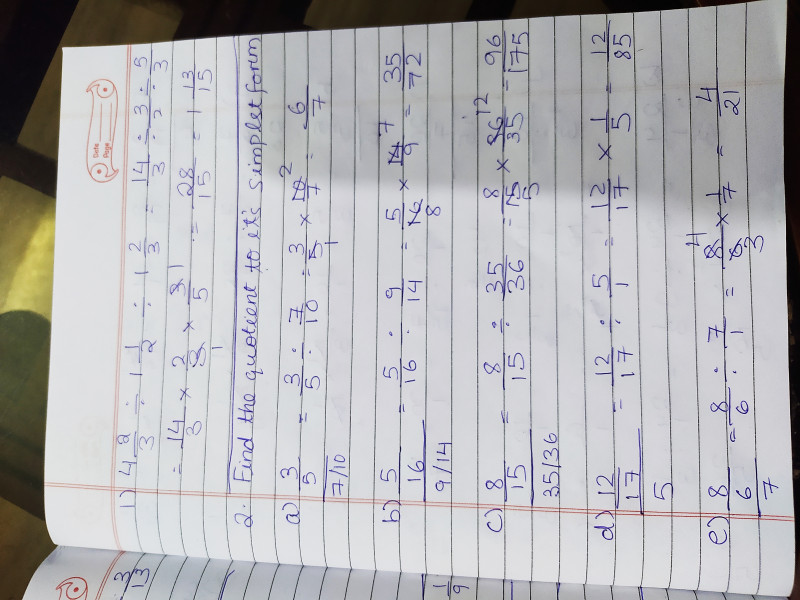 Date
Page
1) 4 2/3 ÷ 1 1/2 ÷ 1 2/3 = 14/3 ÷ 3/2 ÷ 5/3
= 14/3 × 2/3 × 3 1/5 = 28/15 = 1 13/15
2. Find the quotient to it's simplest form
a) 3/5 = 3/5 ÷ 7/10 = 3/5 1 × 10 2/7 = 6/7
7/10
b) 5/16 = 5/16 ÷ 9/14 = 5/16 8 × 14 7/9 = 35/72
9/14
c) 8/15 = 8/15 ÷ 35/36 = 8/15 5 × 36 12/35 = 96/175
35/36
d) 12/17 = 12/17 ÷ 5/1 = 12/17 × 1/5 = 12/85
5
e) 8/6 = 8/6 ÷ 7/1 = 8 4/6 3 × 1/7 = 4/21
7
3/13
1/9